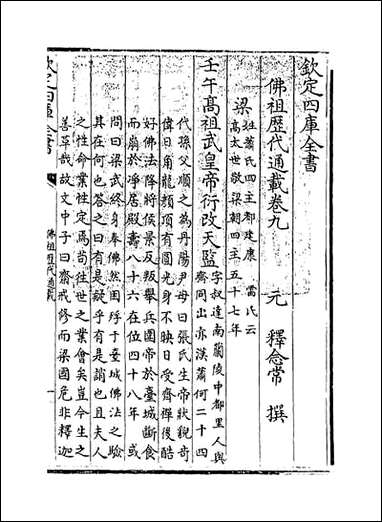 欽定四庫全書
佛祖歷代通載卷九 元 釋念常 撰
梁
姓蕭氏四主都建康 雷氏云
高太世敬梁朝四主五十七年
壬午高祖武皇帝衍改天監
字叔達南蘭陵中都里人與
齊同出亦漢蕭何二十四
代孫父順之為丹陽尹母曰張氏生帝狀貌奇
偉日角龍顏項有圓光身不映日受齊禪後酷
好佛法降將侯景反叛舉兵圍帝於臺城斷食
而崩於淨居殿壽八十六在位四十八年 或
問曰梁武終身奉佛然困殍于臺城佛法之驗
其在何也答之曰有是疑乎有是誚也且夫人
之性命業性定焉尚往世之業會矣豈今生之
善革哉故文中子曰齋戒修而梁國危非釋迦
欽定四庫全書
佛祖歷代通載
一